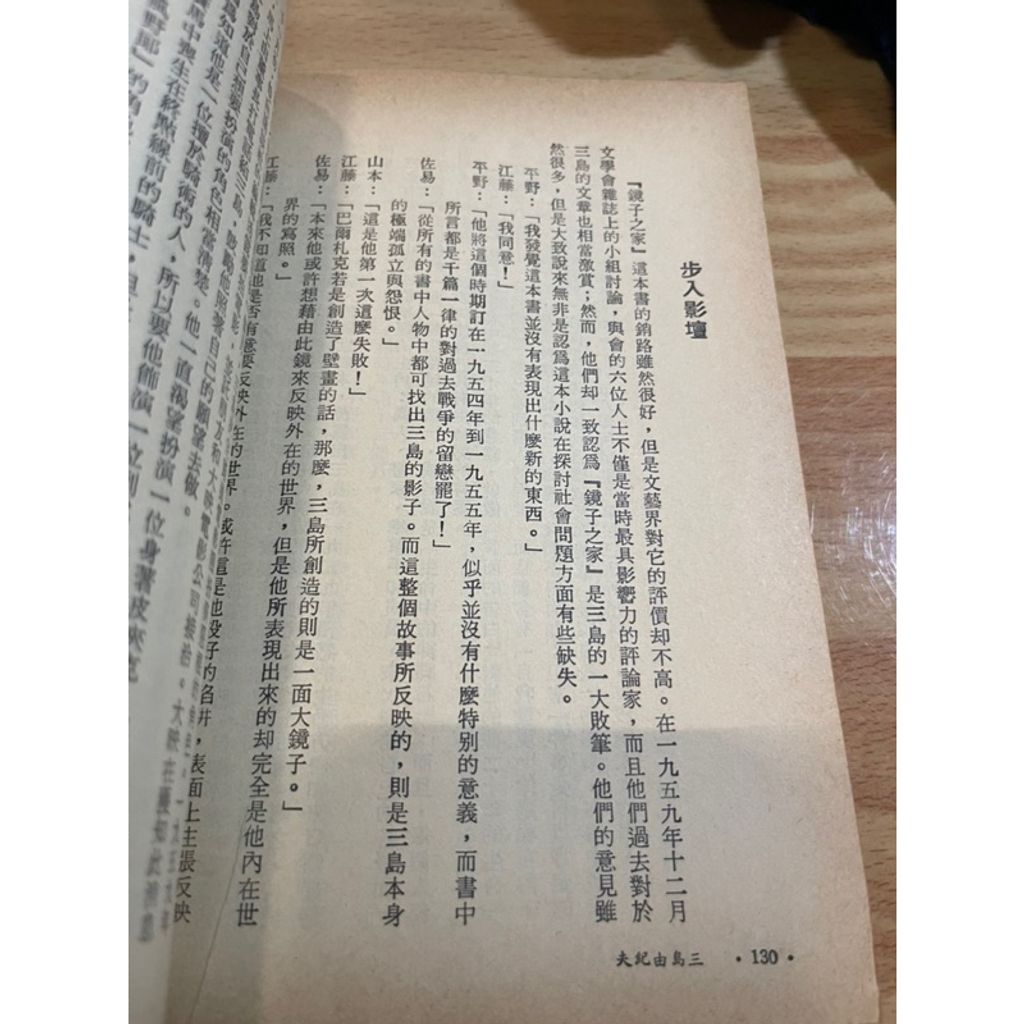 步入影壇
『鏡子之家』這本書的銷路雖然很好，但是文藝界對它的評價却不高。在一九五九年十二月
文學會雜誌上的小組討論，與會的六位人士不僅是當時最具影響力的評論家，而且他們過去對於
三島的文章也相當激賞；然而，他們却一致認爲『鏡子之家』是三島的一大敗筆。他們的意見雖
然很多，但是大致說來無非是認爲這本小說在探討社會問題方面有些缺失。
平野：「我發覺這本書並沒有表現出什麼新的東西。」
江藤：「我同意！」
平野：「他將這個時期訂在一九五四年到一九五五年，似乎並沒有什麼特別的意義，而書中
所言都是千篇一律的對過去戰爭的留戀罷了！」
佐易：「從所有的書中人物中都可找出三島的影子。而這整個故事所反映的，則是三島本身
的極端孤立與怨恨。」
山本：「這是他第一次這麼失敗！」
江藤：「巴爾札克若是創造了壁畫的話，那麼，三島所創造的則是一面大鏡子。」
佐易：「本來他或許想藉由此鏡來反映外在的世界，但是他所表現出來的却完全是他內在世
界的寫照。」
江藤：「我不知道他是否有意要反映外在的世界。或許這是他設好的陷井，表面上主張反映
三島由紀夫 •130•